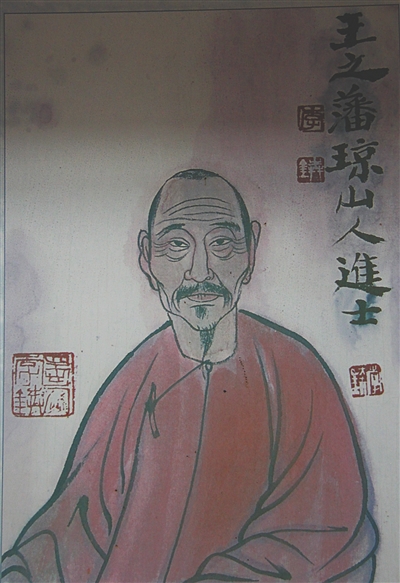 王之藩琼山人進士